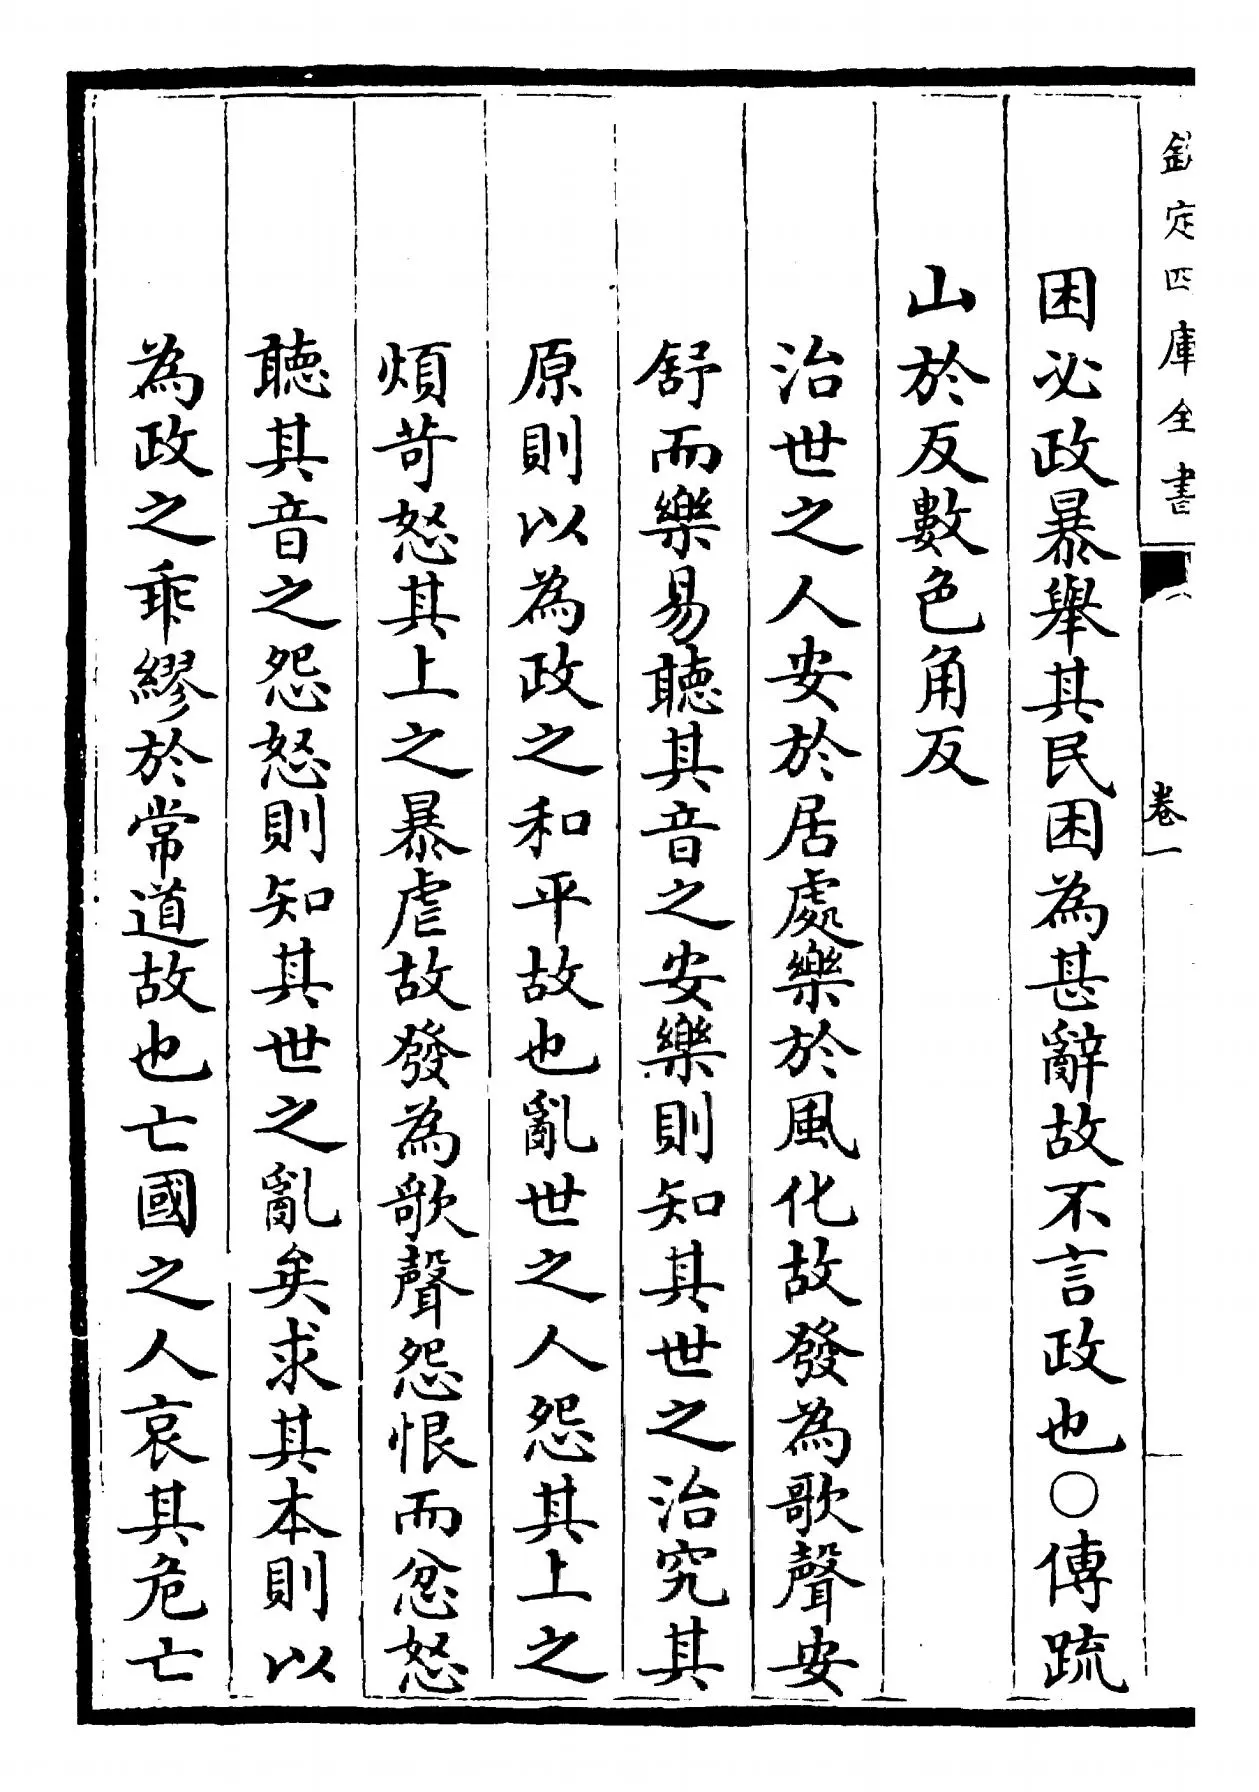 欽定四庫全書
卷一
困必政暴舉其民困為甚辭故不言政也○傳疏
山於反數色角反
治世之人安於居處樂於風化故發為歌聲安
舒而樂易聽其音之安樂則知其世之治究其
原則以為政之和平故也亂世之人怨其上之
煩苛怒其上之暴虐故發為歌聲怨恨而忿怒
聽其音之怨怒則知其世之亂矣求其本則以
為政之乖繆於常道故也亡國之人哀其危亡